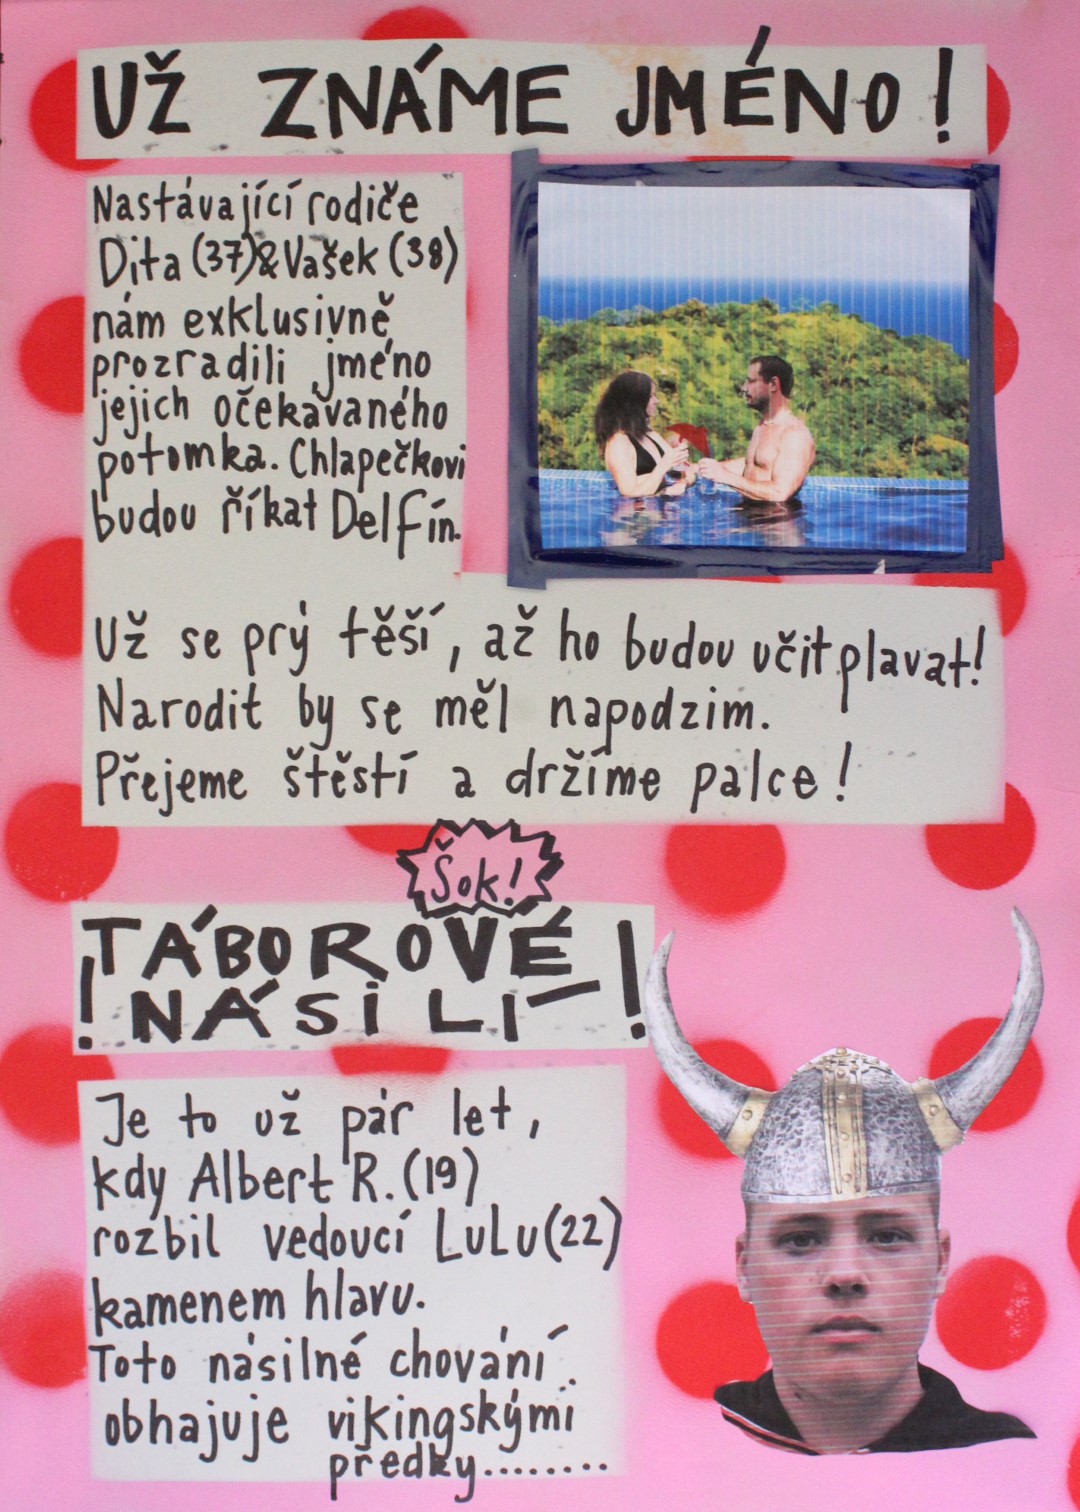 UŽ ZNÁME JMÉNO!
Nastávající rodiče
Dita (37)&Vašek (38)
nám exklusivně
prozradili jméno
jejich očekávaného
potomka. Chlapečkovi
budou říkat Delfín.
Už se prý těší, až ho budou učit plavat!
Narodit by se měl napodzim.
Přejeme štěstí a držíme palce!
Šok!
TÁBOROVÉ
! NÁSILÍ !
Je to už pár let,
kdy Albert R. (19)
rozbil vedoucí LuLu (22)
kamenem hlavu.
Toto násilné chování
obhajuje vikingskými
předky........